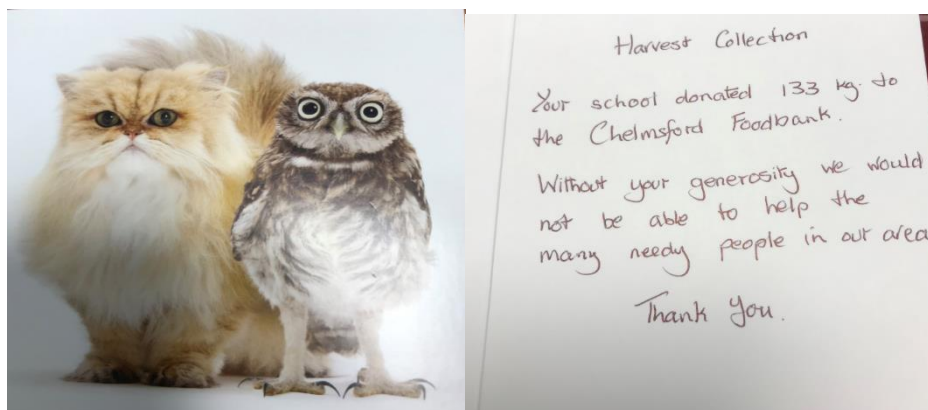 Harvest Collection
Your school donated 133 kg. to
the Chelmsford Foodbank.
Without your generosity we would
not be able to help the
many needy people in our area
Thank You.